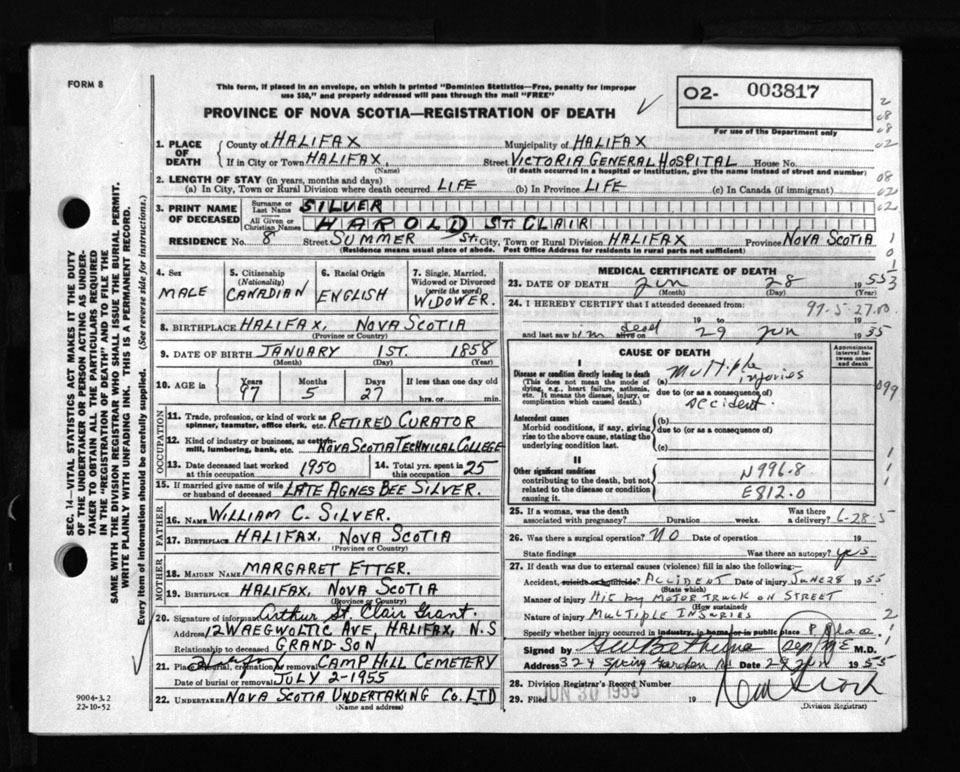 FORM 8
This form, if placed in an envelope, on which is printed "Dominion Statistics—Free, penalty for improper
use $50," and properly addressed will pass through the mail "FREE"
PROVINCE OF NOVA SCOTIA—REGISTRATION OF DEATH
02- 003817
For use of the Department only
SEC. 14—VITAL STATISTICS ACT MAKES IT THE DUTY
OF THE UNDERTAKER OR PERSON ACTING AS UNDER-
TAKER TO OBTAIN ALL THE PARTICULARS REQUIRED
IN THE "REGISTRATION OF DEATH" AND TO FILE THE
SAME WITH THE DIVISION REGISTRAR WHO SHALL ISSUE THE BURIAL PERMIT.
WRITE PLAINLY WITH UNFADING INK. THIS IS A PERMANENT RECORD.
Every item of information should be carefully supplied. (See reverse side for instructions.)
1. PLACE OF DEATH
County of HALIFAX Municipality of HALIFAX
If in City or Town HALIFAX, Street VICTORIA GENERAL HOSPITAL House No.
(Name) (If death occurred in a hospital or institution, give the name instead of street and number)
2. LENGTH OF STAY (in years, months and days)
(a) In City, Town or Rural Division where death occurred LIFE (b) In Province LIFE (c) In Canada (if immigrant)
3. PRINT NAME OF DECEASED
Surname or Last Name SILVER
All Given or Christian Names HAROLD ST. CLAIR
RESIDENCE No. 8 Street SUMMER St. City, Town or Rural Division HALIFAX Province NOVA SCOTIA
(Residence means usual place of abode. Post Office Address for residents in rural parts not sufficient)
4. Sex MALE
5. Citizenship (Nationality) CANADIAN
6. Racial Origin ENGLISH
7. Single, Married, Widowed or Divorced (write the word) WIDOWER.
8. BIRTHPLACE HALIFAX, NOVA SCOTIA
(Province or Country)
9. DATE OF BIRTH JANUARY 1ST. 1858
(Month) (Day) (Year)
10. AGE in Years 97 Months 5 Days 27 If less than one day old hrs. or min.
OCCUPATION
11. Trade, profession, or kind of work as spinner, teamster, office clerk, etc. RETIRED CURATOR
12. Kind of industry or business, as cotton-mill, lumbering, bank, etc. NOVA SCOTIA TECHNICAL COLLEGE
13. Date deceased last worked at this occupation 1950
14. Total yrs. spent in this occupation 25
15. If married give name of wife or husband of deceased LATE AGNES BEE SILVER.
FATHER
16. NAME WILLIAM C. SILVER.
17. BIRTHPLACE HALIFAX, NOVA SCOTIA
(Province or Country)
MOTHER
18. MAIDEN NAME MARGARET ETTER.
19. BIRTHPLACE HALIFAX, NOVA SCOTIA
(Province or Country)
20. Signature of informant Arthur St. Clair Grant.
Address 12 WAEGWOLTIC AVE, HALIFAX, N.S
Relationship to deceased GRAND-SON
21. Place of burial, cremation or removal CAMP HILL CEMETERY
Date of burial or removal JULY 2-1955
22. UNDERTAKER NOVA SCOTIA UNDERTAKING CO. LTD
(Name and address)
9004-3.2
22-10-52
MEDICAL CERTIFICATE OF DEATH
23. DATE OF DEATH Jun 28 1955
(Month) (Day) (Year)
24. I HEREBY CERTIFY that I attended deceased from:
97-5-27.00
19 to 19
and last saw him dead alive on 29 Jun 1955
CAUSE OF DEATH
Approximate interval between onset and death
I
Disease or condition directly leading to death
(This does not mean the mode of dying, e.g., heart failure, asthenia, etc. It means the disease, injury, or complication which caused death.)
(a) Multiple injuries
due to (or as a consequence of)
accident.
Antecedent causes
Morbid conditions, if any, giving rise to the above cause, stating the underlying condition last.
(b)
due to (or as a consequence of)
(c)
II
Other significant conditions contributing to the death, but not related to the disease or condition causing it.
N996.8
E812.0
25. If a woman, was the death associated with pregnancy? Duration weeks. Was there a delivery? 6-28-5
26. Was there a surgical operation? NO Date of operation 19
State findings Was there an autopsy? yes
27. If death was due to external causes (violence) fill in also the following:
Accident, suicide or homicide? ACCIDENT Date of injury JUNE 28 1955
(State which)
Manner of injury HIT by MOTOR TRUCK ON STREET
(How sustained)
Nature of injury MULTIPLE INJURIES
Specify whether injury occurred in industry, in home, or in public place P. Place
Signed by M.D.
Address 324 Spring Garden Rd Date 29 Jun 1955
28. Division Registrar's Record Number
29. Filed JUN 30 1955 19
(Division Registrar)